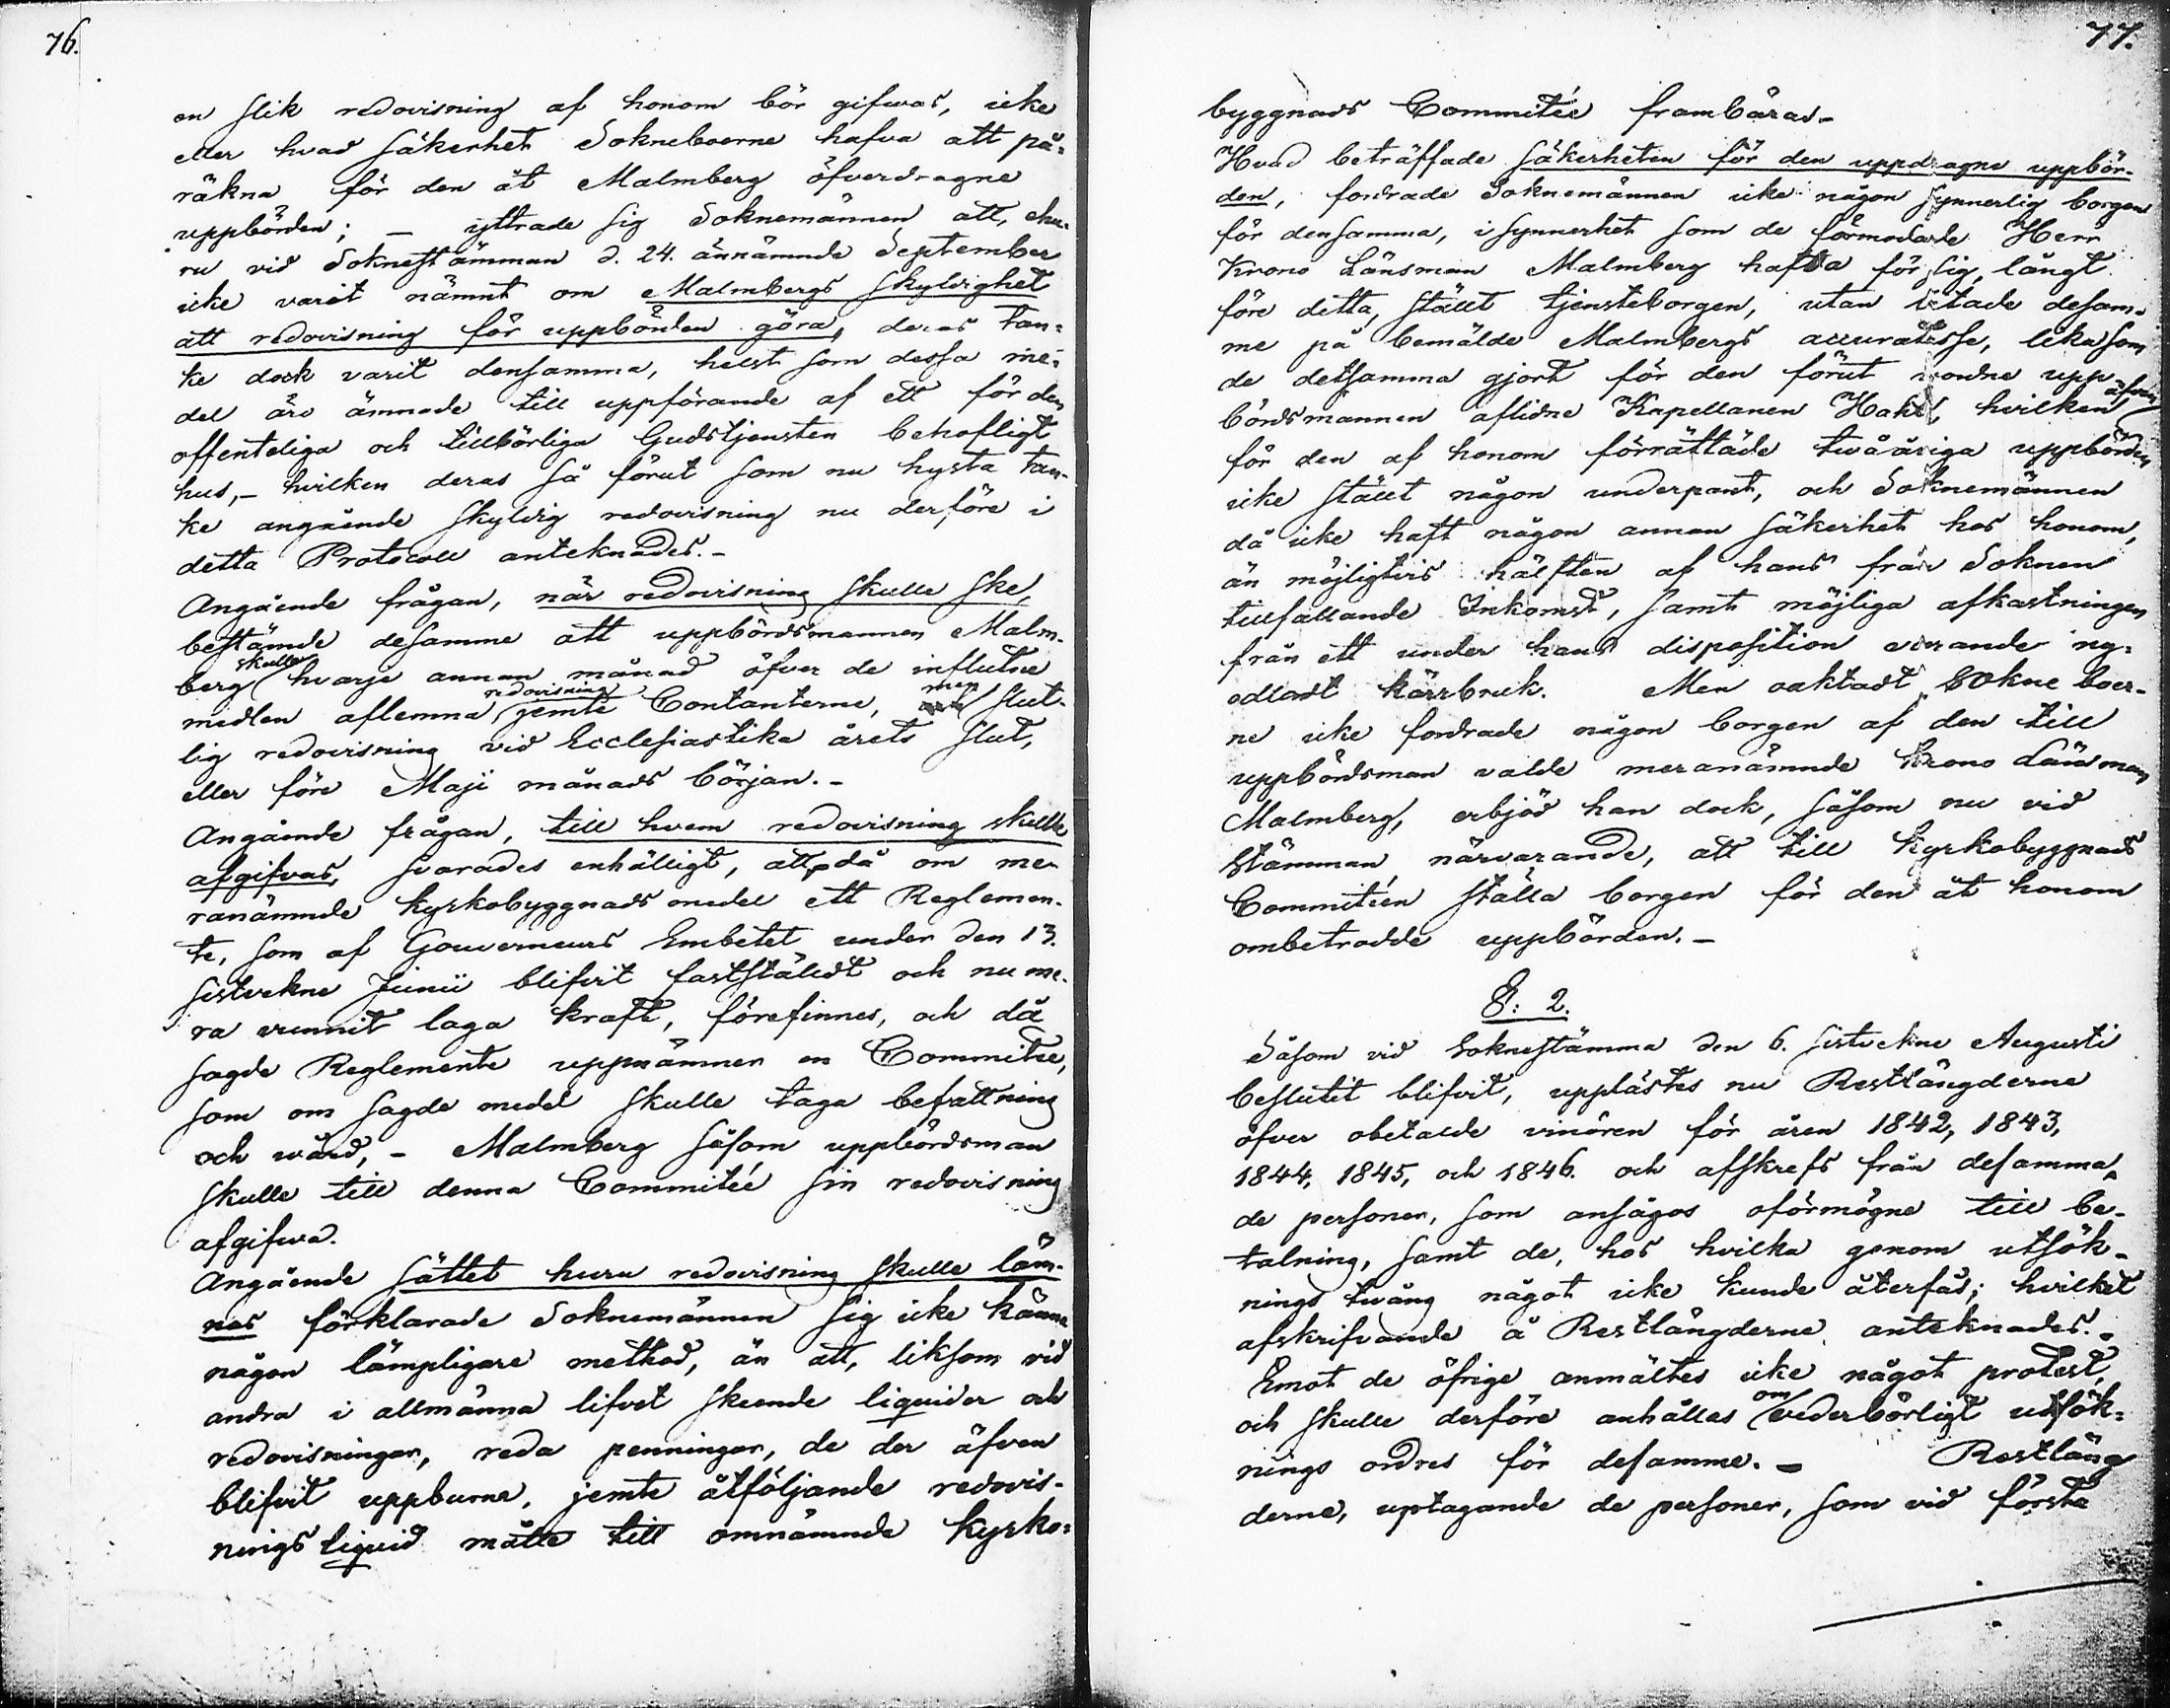 76.
en slik redovisning af honom bör gifwas, icke
eller hvad säkerhet Sokneboerne hafva att på-
räkna för den åt Malmberg öfverdragne
uppbörden; — yttrade sig Soknemännen att, ehu-
ru vid Soknestämman d. 24. ännämnde September
icke varit nämnt om Malmbergs skyldighet
att redovisning för uppbörden göra, deras tan-
ke dock varit densamma, helst som dessa me-
del äro ämnade till uppförande af ett för den
offenteliga och tillbörliga Gudstjensten behofligt
hus, – hvilken deras så förut som nu hysta tan-
ke angående skyldig redovisning nu derföre i
detta Protocoll anteknades. –
Angående frågan, när redovisning skulle ske,
bestämde desamme att uppbördsmannen Malm-
berg skulle hvarje annan månad öfver de influtne
medlen aflemna redovisning jemte Contanterne, men slut-
lig redovisning vid Ecclesiastika årets slut,
eller före Maji månads början. –
Angående frågan, till hvem redovisning skulle
afgifvas, svarades enhälligt, att då om me-
ranämnde kyrkobyggnads medel ett Reglemen-
te, som af Gouverneurs Embetet under den 13.
sistvekne Junii blifvit fastställdt och nu me-
ra vunnit laga kraft, förefinnes, och då
sagde Reglemente uppnämner en Committee,
som om sagde medel skulle taga befattning
och wård, – Malmberg såsom uppbördsman
skulle till denna Committée sin redovisning
afgifwa.
Angående sättet huru redovisning skulle läm-
nas förklarade Soknemännen sig icke känna
någon lämpligare method, än att, liksom vid
andra i allmänna lifvet skeende liquider och
redovisningar, reda penningar, de der äfven
blifvit uppburne, jemte åtföljande redovis-
nings liquid måtte till omnämnde Kyrko-
77.
byggnads Committée frambäras –
Hvad beträffade säkerheten för den uppdragne uppbör-
den, fordrade Soknemännen icke någon synnerlig borgen
för densamma, i synnerhet som de förmodade Herr
Krono Länsman Malmberg hafva för sig, långt
före detta, ställt tjensteborgen, utan litade desam-
me på bemälde Malmbergs accuratesse, lika som
de detsamma gjort för den förut vordne upp-
bördsmannen aflidne Kapellanen Hahl, hvilken äfven
för den af honom förrättade twååriga uppbörden
icke ställt någon underpant, och Soknemännen
då icke haft någon annan säkerhet hos honom,
än möjligtvis hälften af hans från Soknen
tillfallande Inkomst, samt möjliga afkastningen
från ett under hans disposition varande ny-
odladt kärrbruk. Men oaktadt Sokne boer-
ne icke fordrade någon borgen af den till
uppbördsman valde meranämnde Krono Länsman
Malmberg, erbjöd han dock, såsom nu vid
Stämman närvarande, att till Kyrkobyggnads
Committéen ställa borgen för den åt honom
ombetrodde uppbörden. –
§: 2.
Såsom vid Soknestämma den 6. sistvekne Augusti
beslutit blifvit, upplästes nu Restlängderne
öfver obetalde vinören för åren 1842, 1843,
1844, 1845, och 1846. och afskrefs från desamma,
de personer, som ansågos oförmögne till be-
talning, samt de, hos hvilka genom utsök-
nings twång något icke kunde återfås; hvilket
afskrifvande å Restlängderne anteknades. –
Emot de öfrige anmältes icke något protest,
och skulle derföre anhållas om vederbörligt utsök-
nings ordres för desamme. – Restläng
derne, uptagande de personer, som vid första